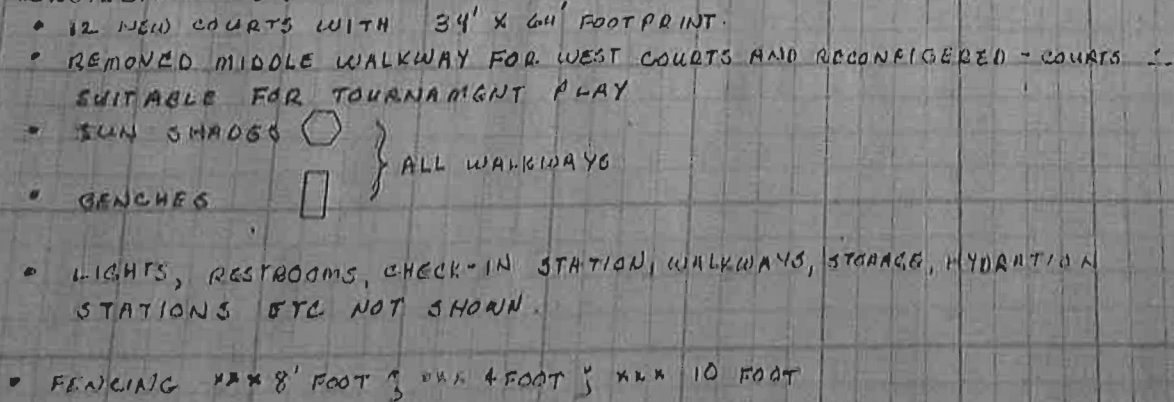 • 12 NEW COURTS WITH 34' X 64' FOOTPRINT.
• REMOVED MIDDLE WALKWAY FOR WEST COURTS AND RECONFIGERED - COURTS ∴
SUITABLE FOR TOURNAMENT PLAY
• SUN SHADES
} ALL WALKWAYS
• BENCHES
• LIGHTS, RESTROOMS, CHECK-IN STATION, WALKWAYS, STORAGE, HYDRATION
STATIONS ETC NOT SHOWN.
• FENCING xxx 8' FOOT ; xxx 4 FOOT ; xxx 10 FOOT